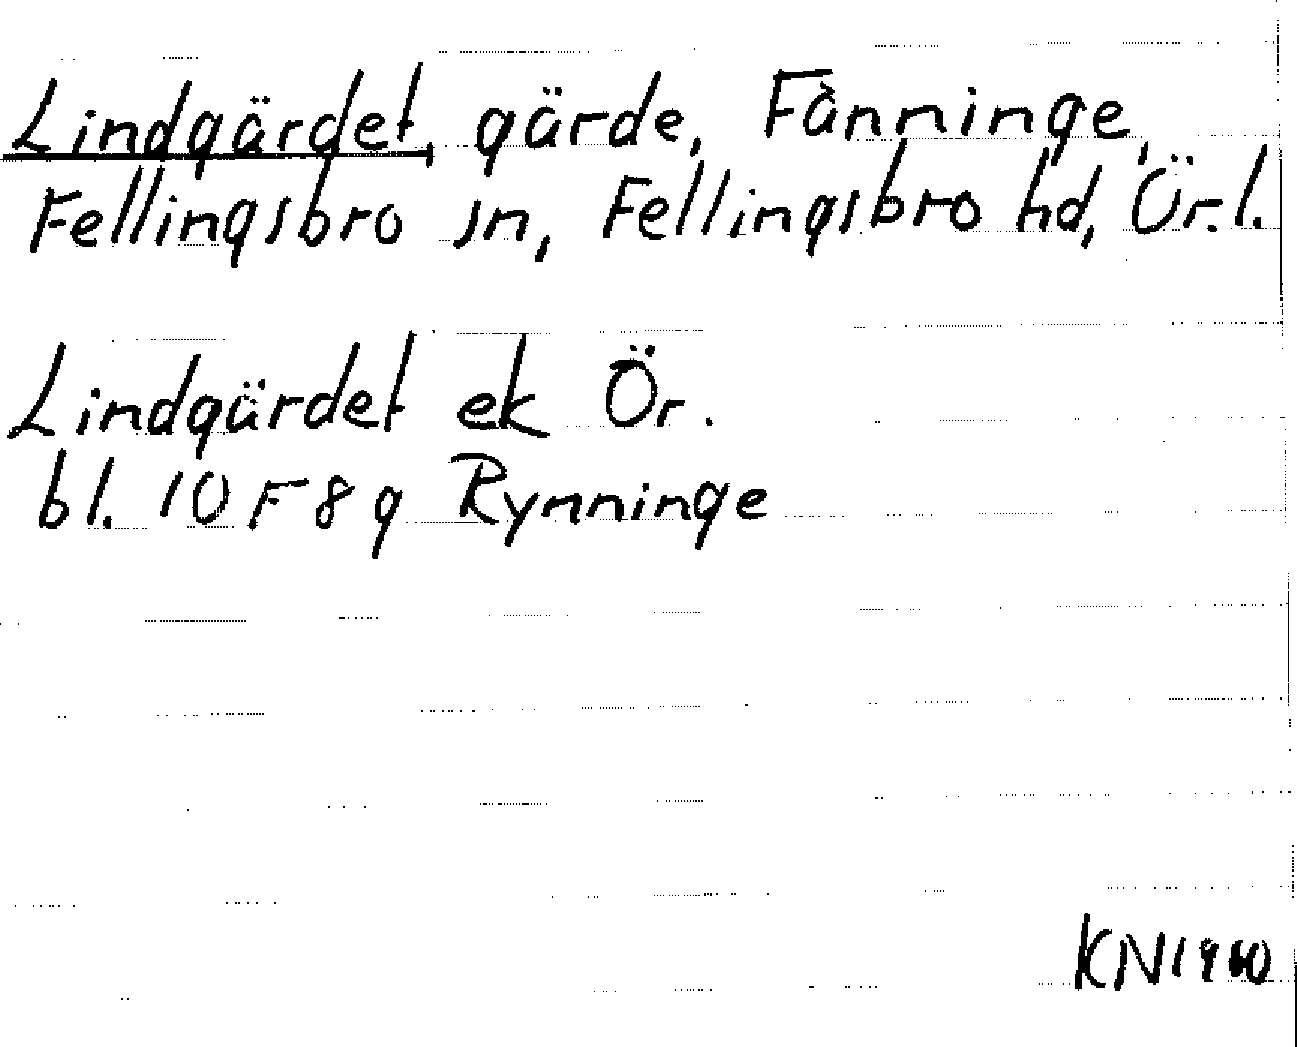 Lindgärdet, gärde, Fånninge,
Fellingsbro sn, Fellingsbro hd, Ör. l.
Lindgärdet ek Ör.
bl. 10 F 8 g Rynninge
KN 1960